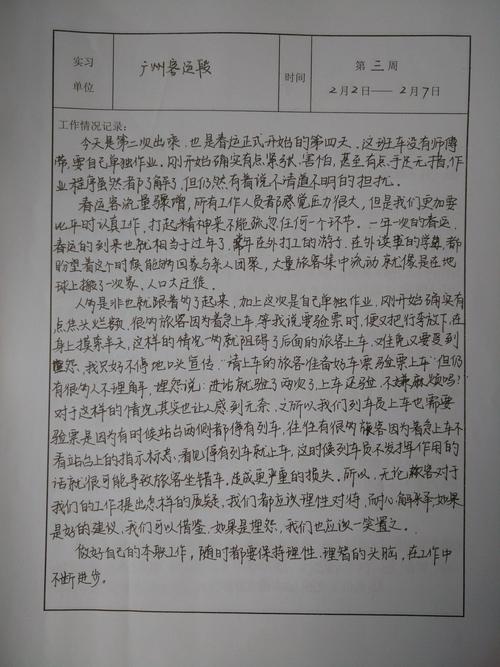 实习单位 广州客运段 时间 第三周 2月2日——2月7日
工作情况记录:
今天是第二次出乘,也是春运正式开始的第四天。这班车没有师傅
带,要自己单独作业。刚开始确实有点紧张、害怕,甚至有点手足无措,作
业程序虽然都了解了,但仍然有着说不清道不明的担忧。
春运客流量骤增,所有工作人员都感觉压力很大,但是我们更加要
比平时认真工作,打起精神来不能疏忽任何一个环节。一年一次的春运,
春运的到来也就相当于过年了,常年在外打工的游子,在外读书的学生,都
盼望着这个时候能够回家与亲人团聚,大量旅客集中流动就像是在地
球上搬了一次家,人口大迁徙。
人多是非也就跟着多了起来,加上这次是自己单独作业,刚开始确实有
点焦头烂额,很多旅客因为着急上车,等我说要验票时,便又把行李放下,在
身上摸索半天,这样的情况一多就阻碍了后面的旅客上车,难免又要受到
埋怨,我只好不停地口头宣传:“请上车的旅客准备好车票验票上车”但仍
有很多人不理解,埋怨说:进站就验了两次了上车还验,不嫌麻烦吗?
对于这样的情况其实也让人感到无奈,之所以我们列车员上车也都要
验票是因为有时候站台两侧都停有列车,往往有很多旅客因为着急上车不
看站台上的指示标志,看见停有列车就上车,这时候列车员不发挥作用的
话就很可能导致旅客坐错车,造成更严重的损失。所以,无论旅客对于
我们的工作提出怎样的质疑,我们都应该理性对待,耐心解释,如果
是好的建议,我们可以借鉴,如果是埋怨,我们也应该一笑置之。
做好自己的本职工作,随时都要保持理性、理智的头脑,在工作中
不断进步。